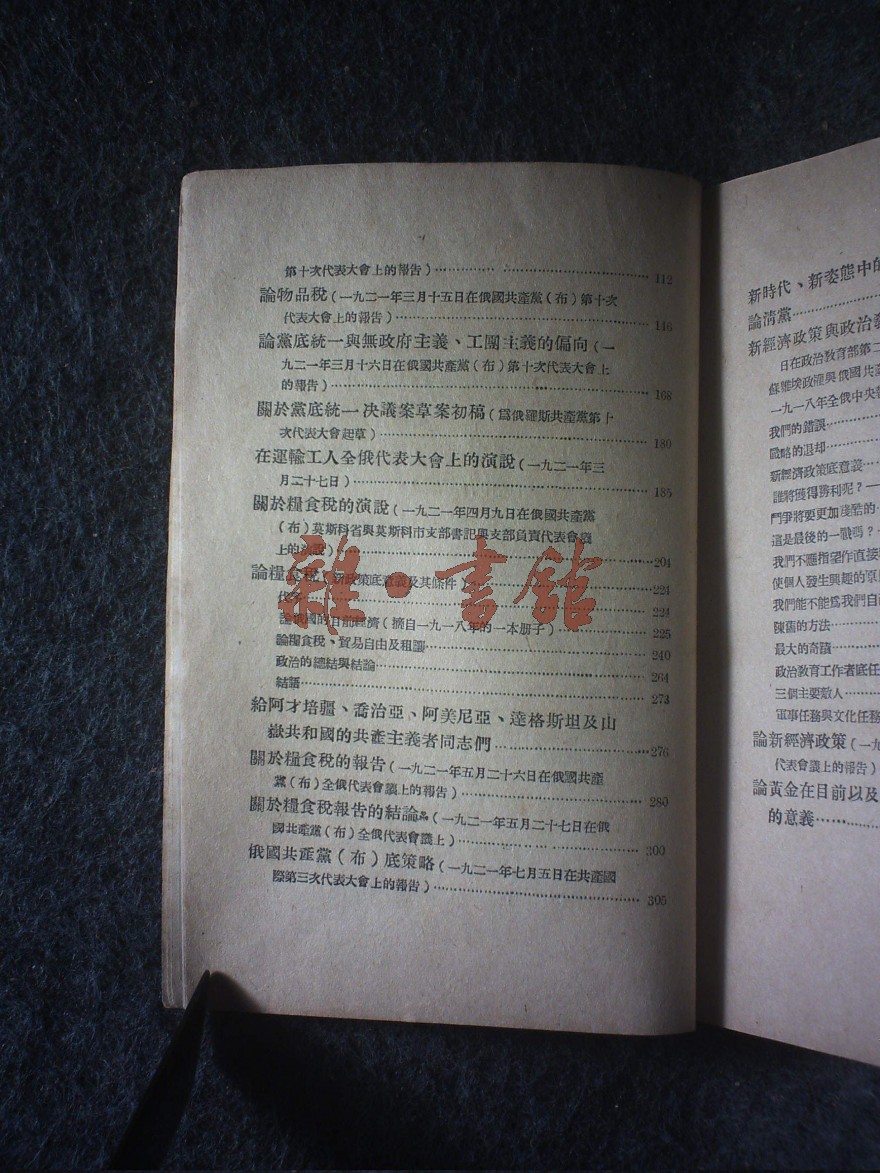 第十次代表大會上的報告）…… 112
論物品稅（一九二一年三月十五日在俄國共產黨（布）第十次
代表大會上的報告）…… 146
論黨底統一與無政府主義、工團主義的偏向（一
九二一年三月十六日在俄國共產黨（布）第十次代表大會上
的報告）…… 168
關於黨底統一决議案草案初稿（爲俄羅斯共產黨第十
次代表大會起草）…… 180
在運輸工人全俄代表大會上的演說（一九二一年三
月二十七日）…… 185
關於糧食稅的演說（一九二一年四月九日在俄國共產黨
（布）莫斯科省與莫斯科市支部書記與支部負責代表會議
上的演說）…… 204
論糧食稅（新政策底意義及其條件）…… 224
代序…… 224
論俄國的目前經濟（摘自一九一八年的一本册子）…… 225
論糧食稅、貿易自由及租讓…… 240
政治的總結與結論…… 264
結語…… 273
給阿才培疆、喬治亞、阿美尼亞、達格斯坦及山
嶽共和國的共產主義者同志們…… 276
關於糧食稅的報告（一九二一年五月二十六日在俄國共產
黨（布）全俄代表會議上的報告）…… 280
關於糧食稅報告的結論（一九二一年五月二十七日在俄
國共產黨（布）全俄代表會議上）…… 300
俄國共產黨（布）底策略（一九二一年七月五日在共產國
際第三次代表大會上的報告）…… 305
雜·書館
新時代、新姿態中的
論清黨……
新經濟政策與政治教
日在政治教育部第二
蘇維埃政權與俄國共產
一九一八年全俄中央執
我們的錯誤……
戰略的退却……
新經濟政策底意義……
誰將獲得勝利呢？—
鬥爭將要更加殘酷的……
這是最後的一戰嗎？…
我們不應指望作直接
使個人發生興趣的原則
我們能不能爲我們自己
陳舊的方法……
最大的奇蹟……
政治教育工作者底任
三個主要敵人……
軍事任務與文化任務
論新經濟政策（一九
代表會議上的報告）
論黃金在目前以及
的意義……